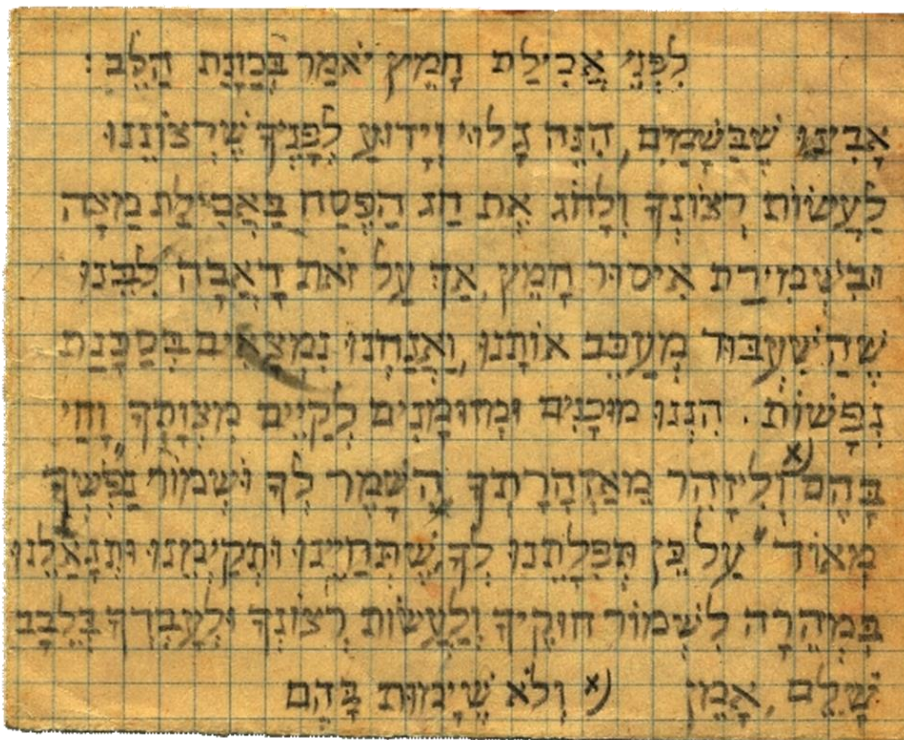 לִפְנֵי אֲכִילַת חָמֵץ יֹאמַר בְּכַוָּנַת הַלֵּב :
אָבִינוּ שֶׁבַּשָּׁמַיִם, הִנֵּה גָלוּי וְיָדוּעַ לְפָנֶיךָ שֶׁרְצוֹנֵנוּ
לַעֲשׂוֹת רְצוֹנְךָ וְלָחֹג אֶת חַג הַפֶּסַח בַּאֲכִילַת מַצָּה
וּבִשְׁמִירַת אִיסּוּר חָמֵץ, אַךְ עַל זֹאת דָאֲבָה לִבֵּנוּ
שֶׁהַשִּׁעְבּוּד מְעַכֵּב אוֹתָנוּ, וַאֲנַחְנוּ נִמְצָאִים בְּסַכָּנַת
נְפָשׁוֹת. הִנְנוּ מוּכָנִים וּמְזוּמָּנִים לְקַיֵּים מִצְוָתְךָ "וָחַי
בָּהֶם x) וְלִיזָּהֵר מֵאַזְהָרָתְךָ הִשָּׁמֵר לְךָ וּשְׁמוֹר נַפְשְׁךָ
מְאוֹד" עַל כֵּן תְּפִלָּתֵנוּ לְךָ, שֶׁתְּחַיֵּינוּ וּתְקַיְּמֵנוּ וְתִגְאָלֵנוּ
בִּמְהֵרָה לִשְׁמוֹר חוּקֶּיךָ וְלַעֲשׂוֹת רְצוֹנְךָ וּלְעָבְדְּךָ בְּלֵבָב
שָׁלֵם, אָמֵן x) וְלֹא שֶׁיָּמוּת בָּהֶם